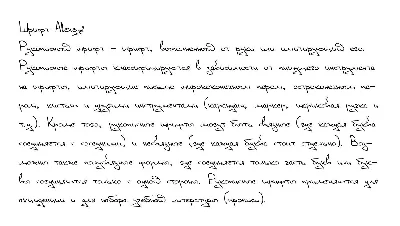 Шрифт Merzy
Рукописный шрифт – шрифт, выполненный от руки или имитирующий его.
Рукописные шрифты классифицируются в зависимости от пишущего инструмента
на шрифты, имитирующие письмо ширококонечным пером, остроконечным пе-
ром, кистью и другими инструментами (карандаш, маркер, шариковая ручка и
т.д.). Кроме того, рукописные шрифты могут быть связные (где каждая буква
соединяется с соседними) и несвязные (где каждая буква стоит отдельно). Воз-
можны также полусвязные формы, где соединяется только часть букв или бук-
вы соединяются только с одной стороны. Рукописные шрифты применяются для
акциденции и для набора учебной литературы (прописи).